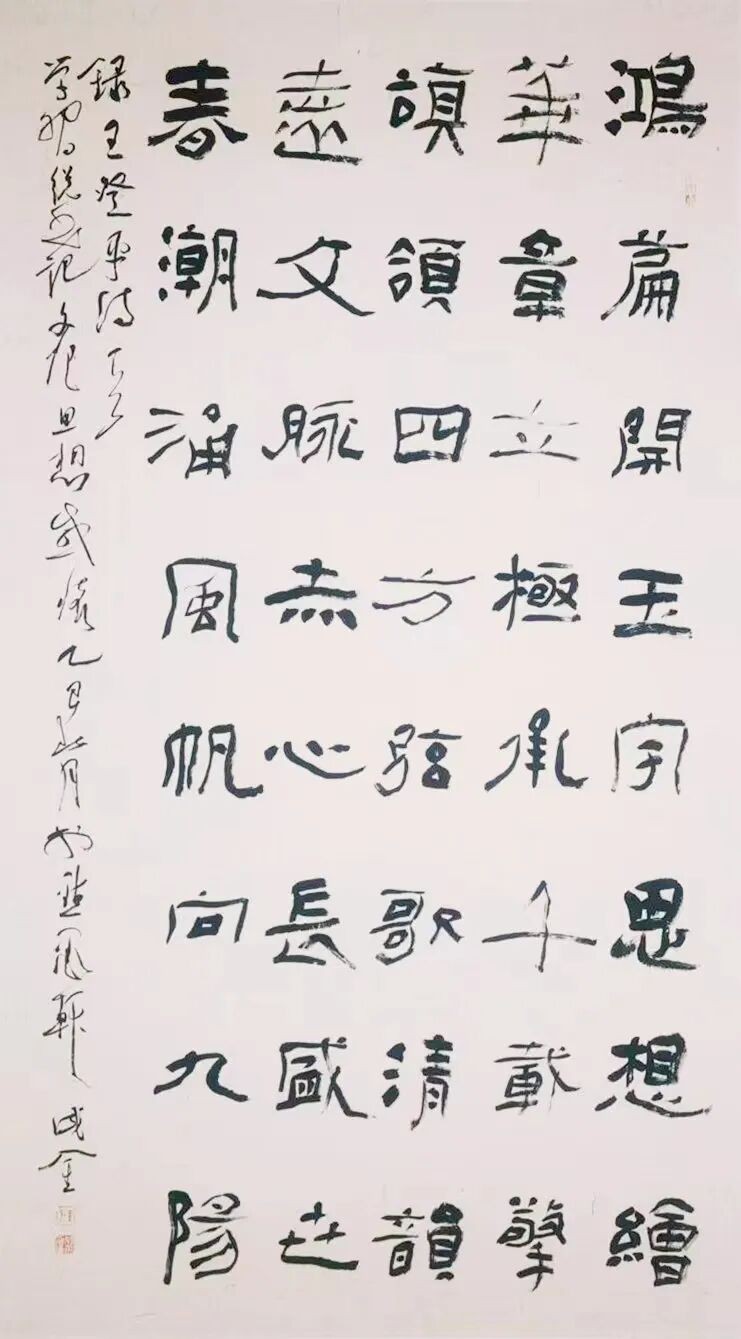 鴻篇開玉宇思想繪
華章立極承千載擎
旗領四方弦歌清韻
遠文脉赤心長盛世
春潮涌風帆向九陽
錄王登平詩
学習總書記文化思想感懷乙巳月於風軒成金